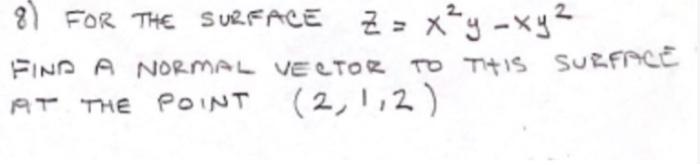 8) FOR THE SURFACE Z = x²y - xy²
FIND A NORMAL VECTOR TO THIS SURFACE
AT THE POINT (2,1,2)